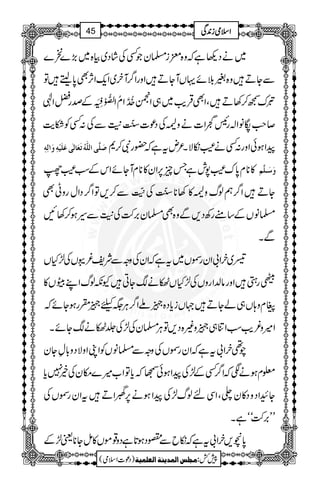 اسلامی زندگی 45
میں نے دیکھا ہے کہ وہ معزز مسلمان جو کسی شادی بیاہ میں بڑے نخرے
سے جاتے ہیں وہ بغیر بلائے یہاں آجاتے ہیں اور اگر آخری ایک لقمہ بھی پالیتے ہیں تو
تبرّک سمجھ کر کھاتے ہیں، ابھی قریب میں ہی انجمن خُدَّامُ الصُّوفِیَہ کے صدر فضلِ الٰہی
صاحب پگانوالہ رئیس گجرات نے ولیمہ کی دعوت سنت کی نیت سے کی، نہ کسی کو شکایت
پیدا ہوئی اور نہ کسی نے عیب نکالا۔ عرض یہ ہے کہ حضور نبی کریم صَلَّی اللّٰہُ تَعَالٰی عَلَیْہِ وَاٰلِہٖ
وَسَلَّم کا نام پاک عیب پوش ہے جس چیز پر ان کا نام آجائے اس کے سب عیب چھپ
جاتے ہیں اگر ہم لوگ ولیمہ کا کھانا سنت کی نیّت سے کریں تو اگر دال روٹی بھی
مسلمانوں کے سامنے رکھ دیں گے وہ بھی مسلمان برکت کی نیت سے سیر ہوکر کھائیں
گے۔
تیسری خرابی ان رسموں میں یہ ہے کہ ان کی وجہ سے شریف غریبوں کی لڑکیاں
بیٹھی رہتی ہیں اور مالداروں کی لڑکیاں ٹھکانے لگ جاتی ہیں کیونکہ لوگ اپنے بیٹوں کا
پیغام وہاں ہی لے جاتے ہیں جہاں جہیز زیادہ ملے اگر ہر جگہ کیلئے جہیز مقرر ہوجائے کہ
امیر و غریب سب اتنا ہی جہیز وغیرہ دیں تو ہر مسلمان کی لڑکی جلد ٹھکانے لگ جائے۔
چوتھی خرابی یہ ہے کہ ان رسموں کی وجہ سے مسلمانوں کو اپنی اولاد وبالِ جان
معلوم ہونے لگی کہ اگر کسی کے لڑکی پیدا ہوئی سمجھا کہ یا تو اب میرے مکان کی خیر نہیں یا
جائیداد و دکان چلی، اسی لئے لوگ لڑکی پیدا ہونے پر گھبراتے ہیں یہ ان رسموں کی
’’برکت‘‘ ہے۔
پانچویں خرابی یہ ہے کہ نکاح سے مقصود ہوتا ہے دو قوموں کا مل جانا یعنی لڑکے
پیش کش: مجلس المدینۃ العلمیۃ (دعوت اسلامی)